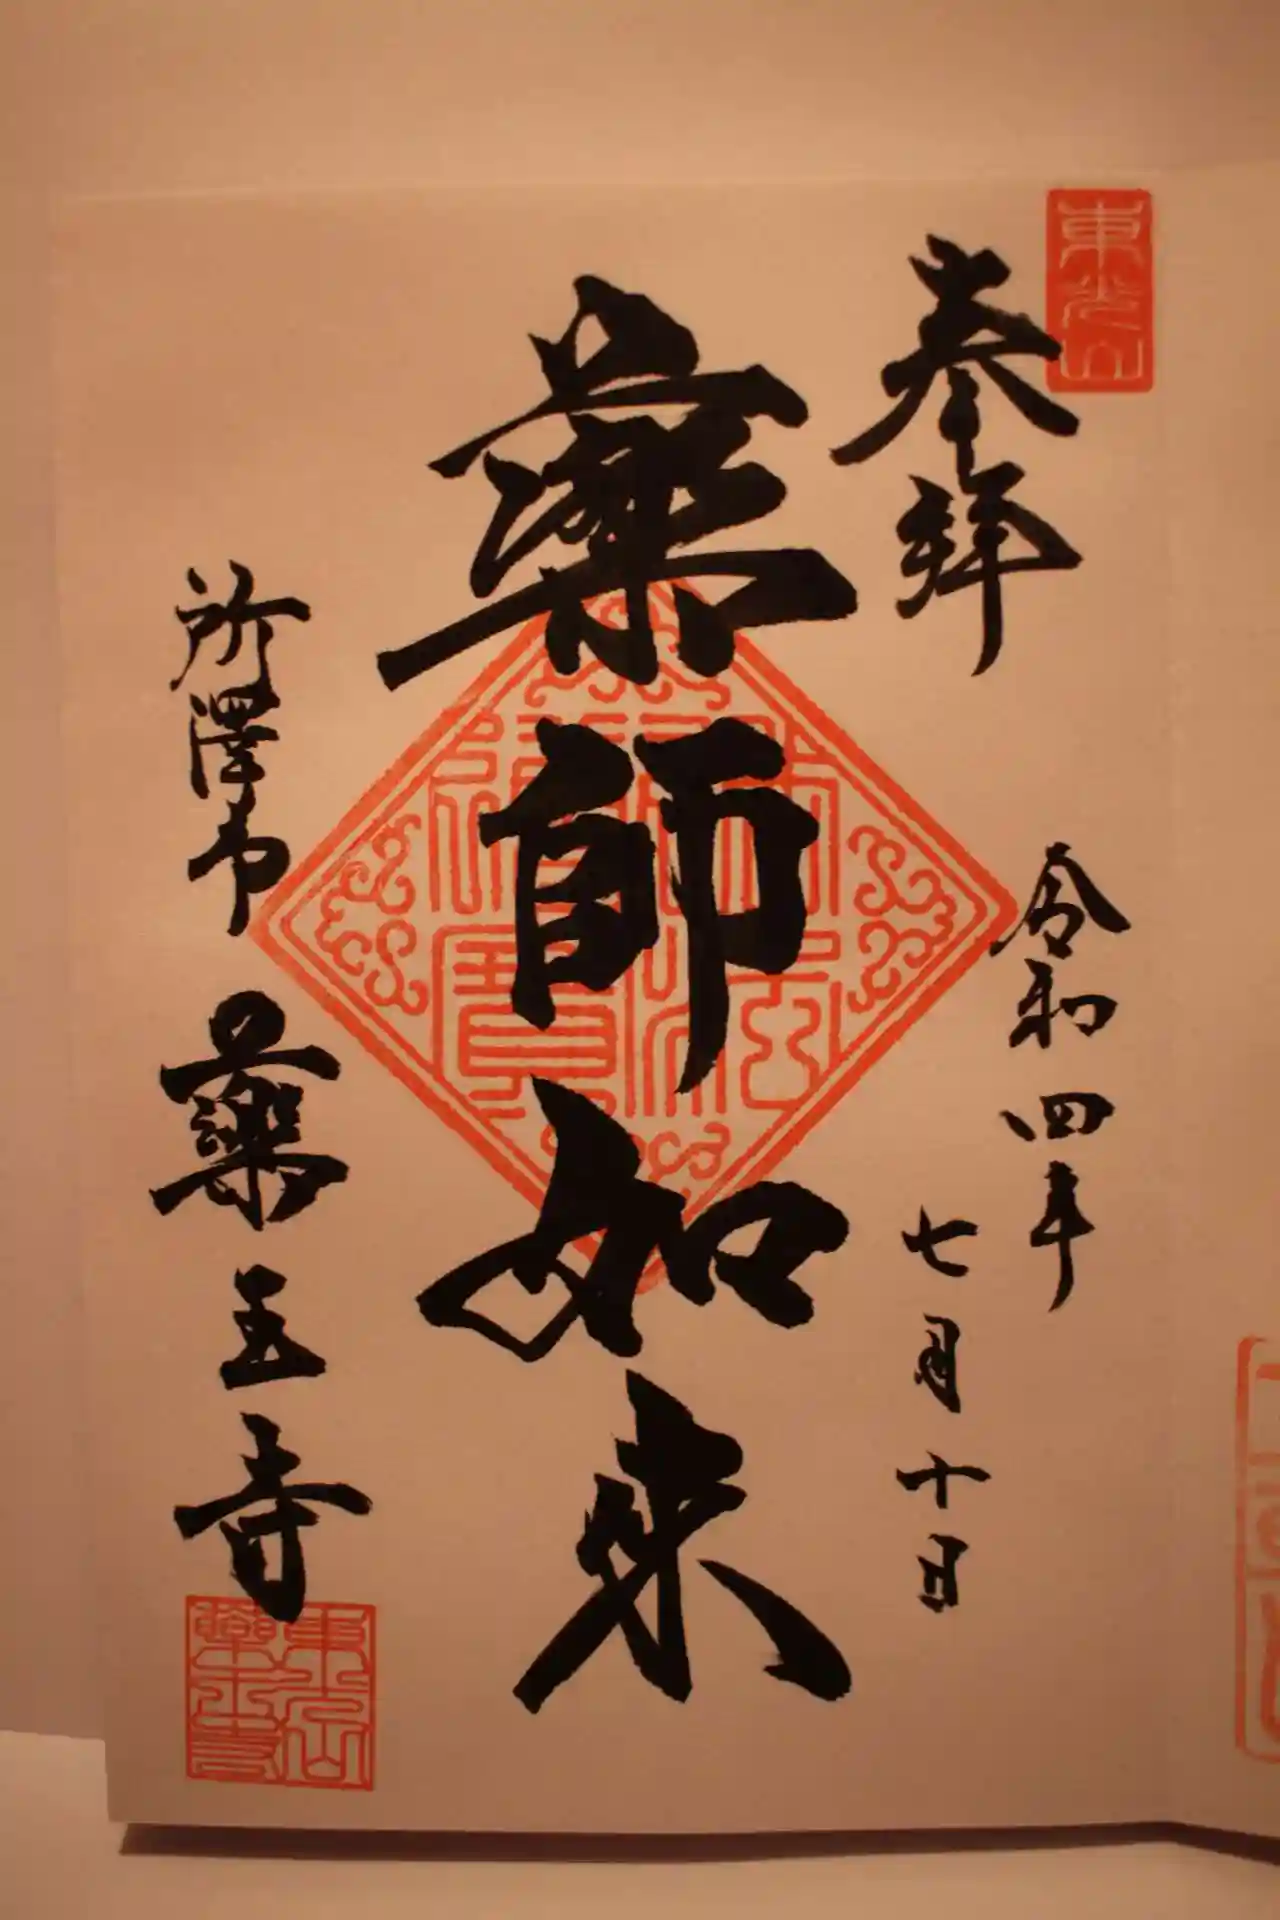 東光山
奉拝
令和四年
七月十日
薬師如来
佛法僧寳
所澤市
薬王寺
東光山
薬王寺